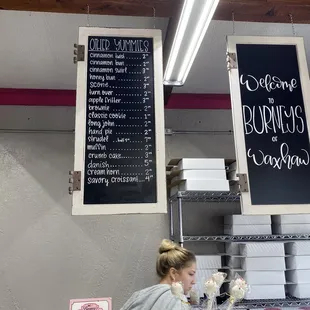 OTHER YUMMIES
cinnamon twist 2
cinnamon bun 3
cinnamon swirl 3
honey bun 2
scone 3
turn over 2
apple filler 3
brownie 2
classic cookie 1
long john 2
hand pie 2
strudel 7
muffin 2
crumb cake 3
danish 5
cream horn 2
savory croissant 4
Welcome
TO
BURNEYS
OF
Waxhaw